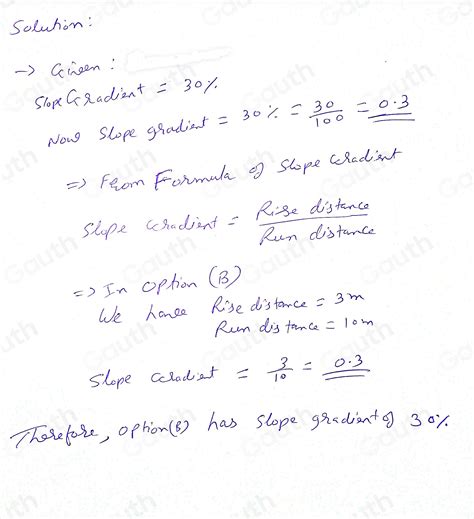 Solution:
→ Given:
Slope Gradient = 30%
Now slope gradient = 30% = 30/100 = 0.3
⇒ From Formula of slope Gradient
Slope Gradient = Rise distance / Run distance
⇒ In option (B)
We have Rise distance = 3m
Run distance = 10m
Slope Gradient = 3/10 = 0.3
Therefore, option (B) has slope gradient of 30%.